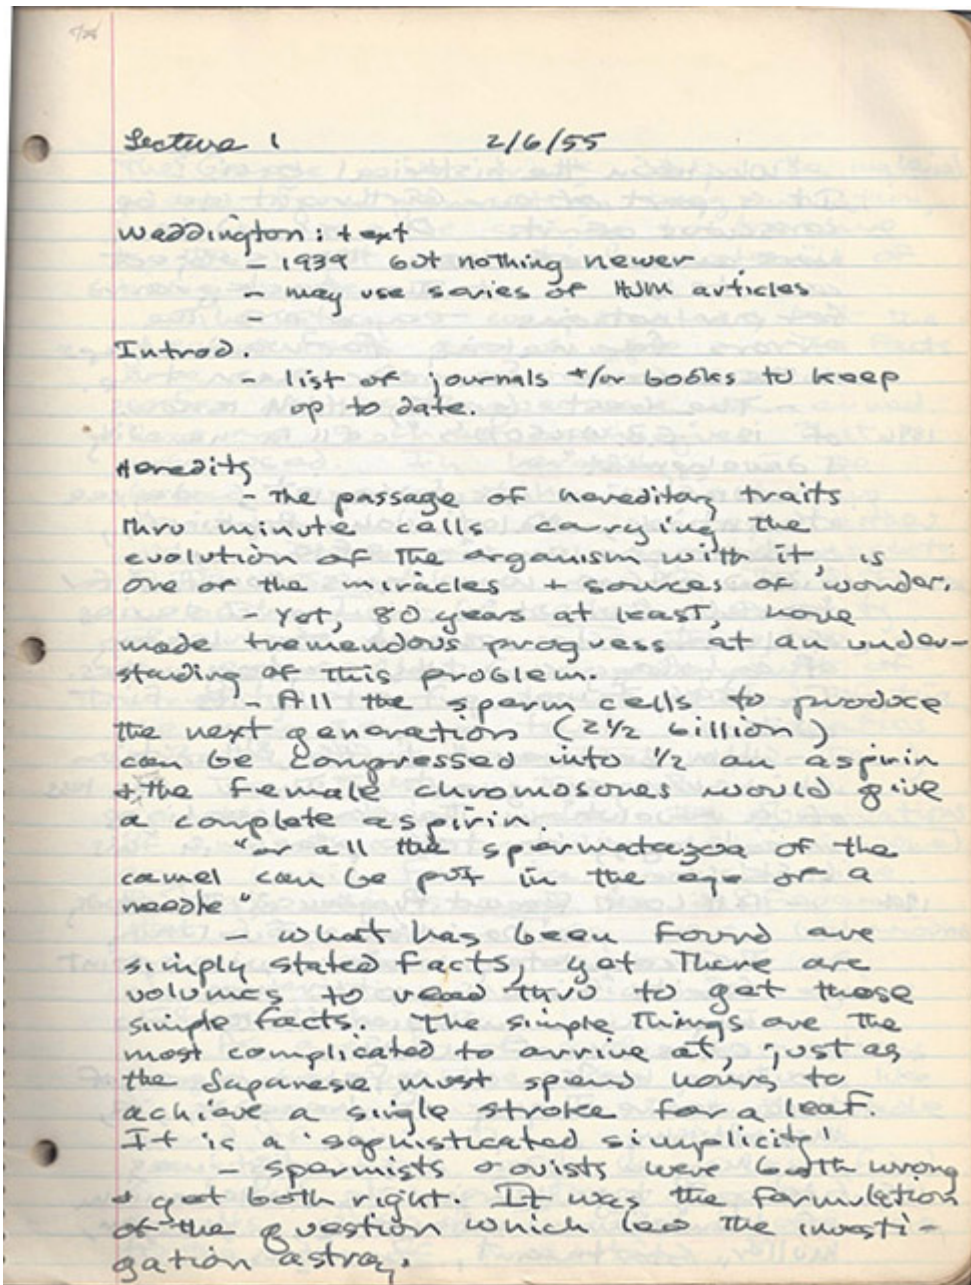 Lecture 1 2/6/55
Waddington: text
- 1939 but nothing newer
- may use series of HJM articles
-
Introd.
- list of journals +/or books to keep
up to date.
Heredity
- The passage of hereditary traits
thru minute cells carrying the
evolution of the organism with it, is
one or the miracles + sources of wonder.
- Yet, 80 years at least, have
made tremendous progress at an under-
standing of this problem.
- All the sperm cells to produce
the next generation (2½ billion)
can be compressed into ½ an aspirin
& the female chromosones would give
a complete aspirin.
"or all the spermatazoa of the
camel can be put in the eye of a
needle"
- What has been found are
simply stated facts, yet There are
volumes to read thru to get these
simple facts. The simple Things are the
most complicated to arrive at, just as
the Japanese must spend hours to
achieve a single stroke for a leaf
It is a 'sophisticated simplicity'
- spermists ovists were both wrong
& yet both right. It was the formulation
of the question which led The investi-
gation astray.